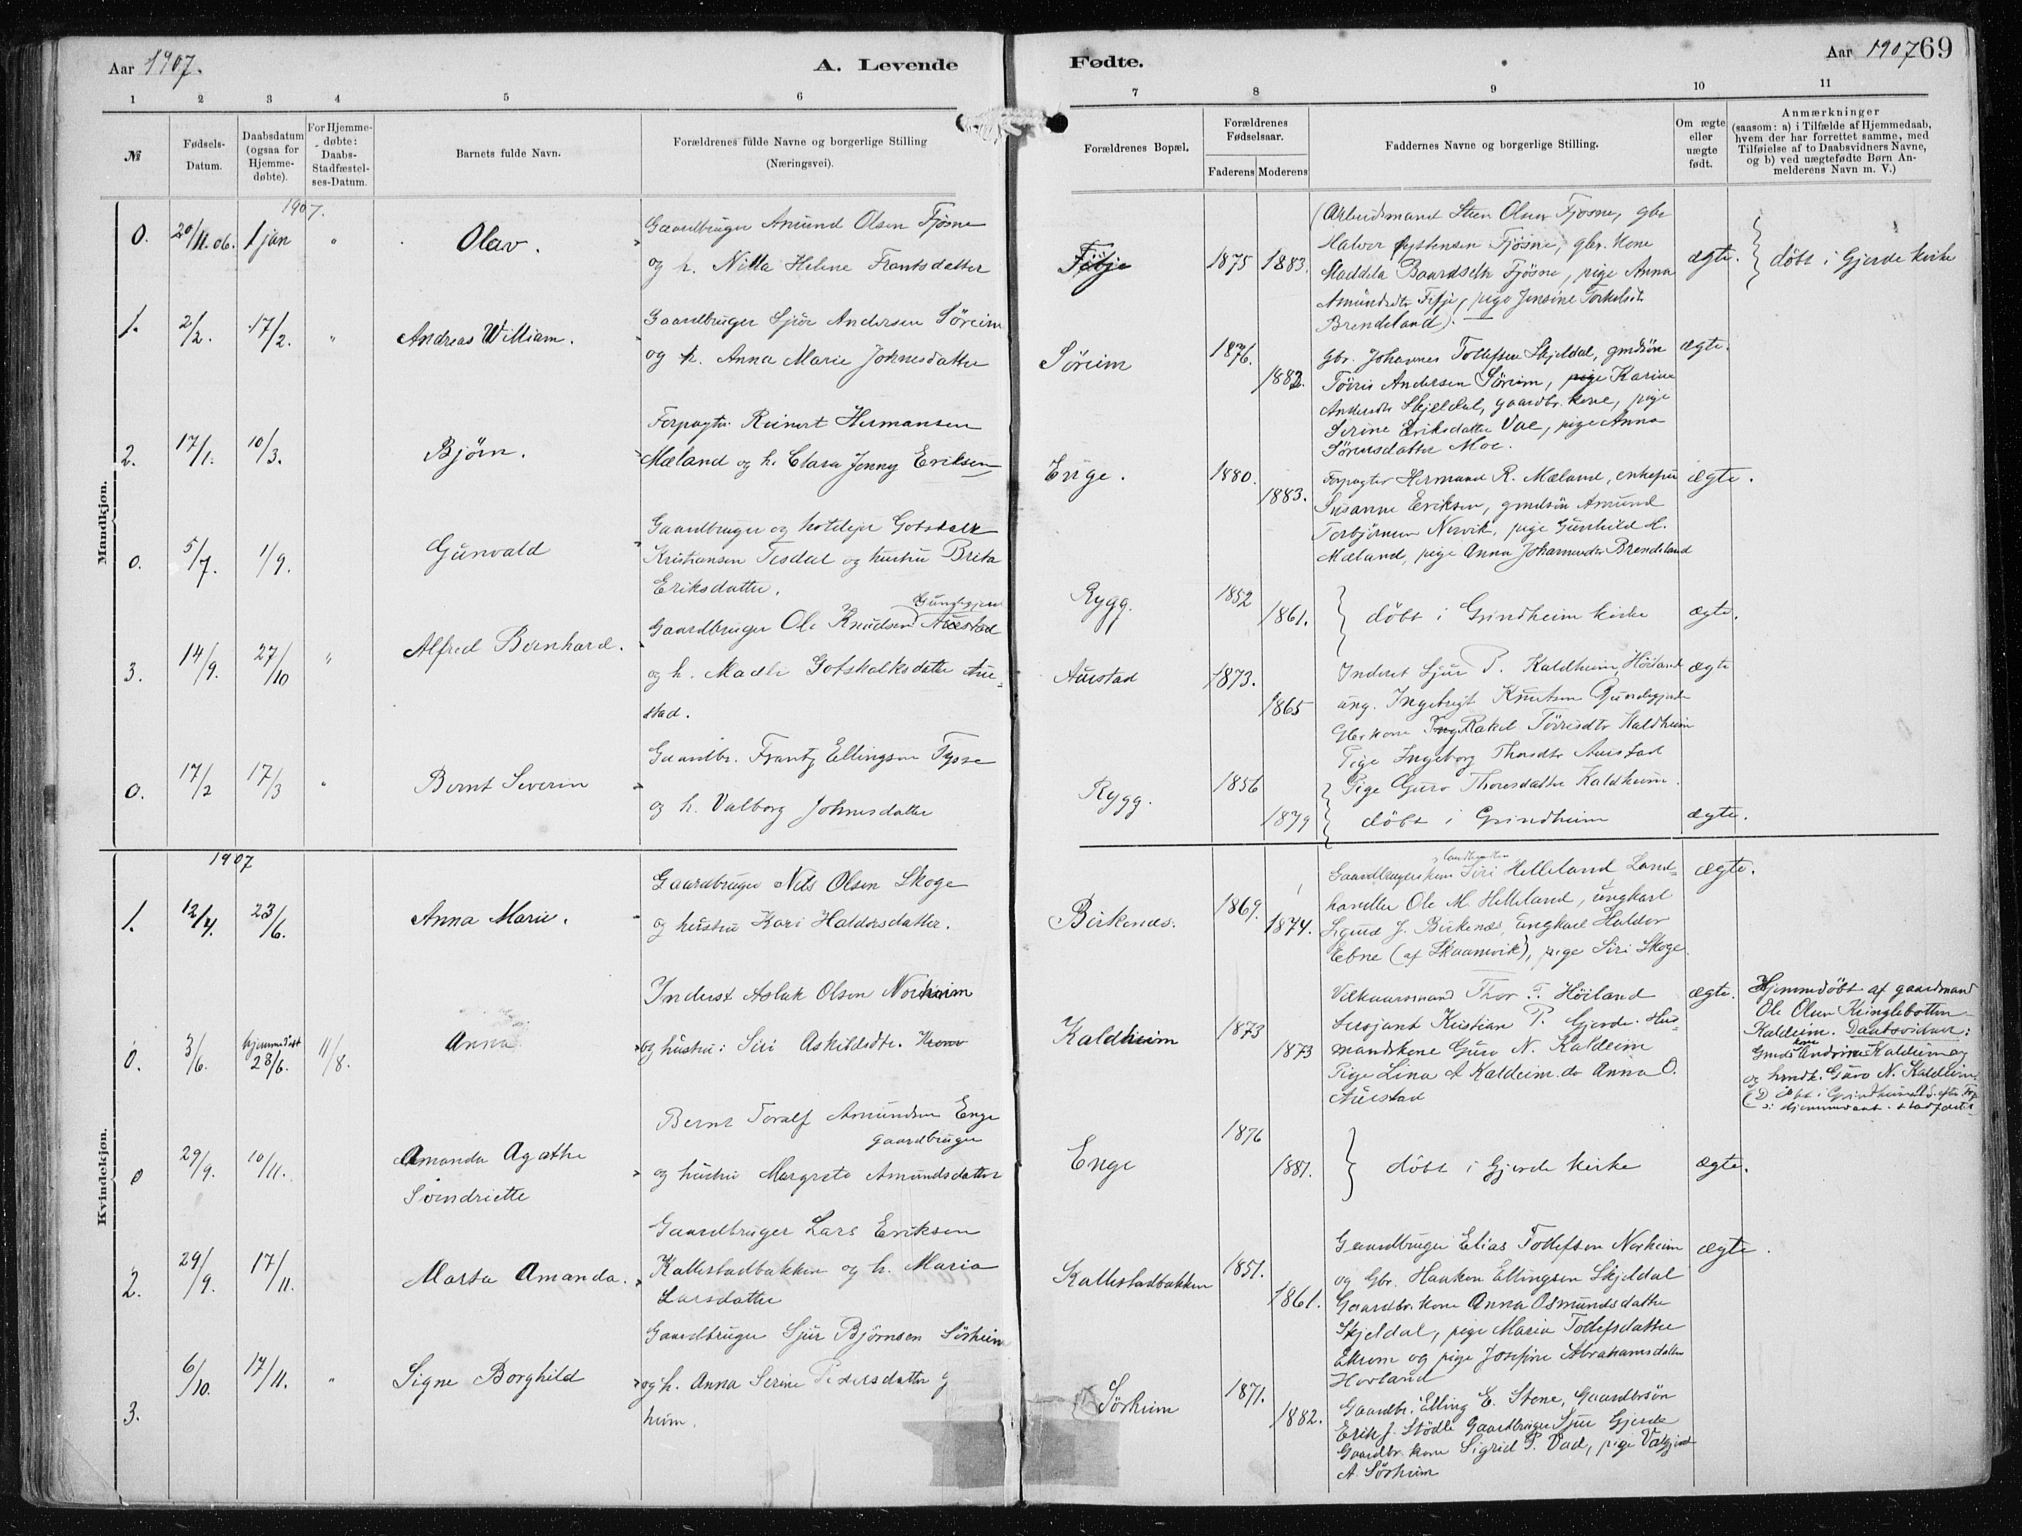 Aar 1907.
A. Levende
Fødte.
Aar 1907 69
1 2 3 4 5 6 7 8 9 10 11
№
Fødsels-
Datum.
Daabsdatum
(ogsaa for
Hjemme-
døbte).
For Hjemme-
døbte:
Daabs-
Stadfæstel-
ses-Datum.
Barnets fulde Navn.
Forældrenes fulde Navne og borgerlige Stilling
(Næringsvei).
Forældrenes Bopæl.
Forældrenes
Fødselsaar.
Faderens Moderens
Faddernes Navne og borgerlige Stilling.
Om ægte
eller
uægte
født.
Anmærkninger
(saasom: a) i Tilfælde af Hjemmedaab,
hvem der har forrettet samme, med
Tilføielse af to Daabsvidners Navne,
og b) ved uægtefødte Børn An-
melderens Navn m. V.)
Mandkjøn.
1907.
0. 20/11.06. 1 jan " Olav.
Gaardbruger Amund Olsen Fjøsne
og h. Nilla Helene Frantsdatter
1875 1883.
(Arbeidsmand Steen Olsen Fjøsne, gbr
Halvor Østensen Fjøsne, gbr. kone
Maddela Baardsdtr Fjøsne, pige Anna
Amundsdtr Fitje, pige Jensine Torkelsdtr
Brendeland).
ægte.
døbt i Gjerde kirke
1. 2/2. 17/2. " Andreas William.
Gaardbruger Sjur Andersen Søreim
og h. Anna Marie Johnesdatter
Søreim
1876. 1882.
gbr. Johannes Tollefsen Skjeldal, gmdsøn
Tørris Andersen Søreim, pige Karine
Andersdtr Skjeldal, gaardbr. kone, pige
Serine Eriksdatter Vae, pige Anna
Sørensdatter Moe.
ægte.
2. 17/1. 10/3. Bjørn.
Forpagter Reinert Hermansen
Mæland og h. Clara Jenny Eriksen
Enge.
1880. 1883.
Forpagter Hermand R. Mæland, enkefru
Susanne Eriksen, gmdsøn Amund
Torbjørnsen Nervik, pige Gunhild H.
Mæland, pige Anna Johannesdtr Brendeland
ægte.
0. 5/7. 1/9. Gunvald
Gaardbruger og hoteleier Gotskalk
Kristiansen Tesdal og hustru Brita
Eriksdatter.
Rygg.
1852 1861.
døbt i Grindheim kirke
ægte.
3. 14/9. 27/10 " Alfred Bernhard.
Gaardbruger Ole Knudsen Auestad
og h. Madli Gotskalksdatter Aue-
stad.
Auestad
1873. 1865
Inderst Sjur P. Kaldheim, Høiland
ung. Ingebrigt Knutsen
Gbr kone Rakel Tørrisdtr Kaldheim
Pige Ingeborg Thorsdtr Auestad
Pige Guro Thoresdatter Kaldheim.
ægte
0. 17/2 17/3 " Bernt Severin
Gaardbr. Frantz Ellingsen Tysse
og h. Valborg Johnesdatter
Rygg.
1856 1879
døbt i Grindheim
ægte.
Kvindekjøn.
1907
1. 12/4. 23/6. Anna Marie.
Gaardbruger Nils Olsen Skoge
og hustru Kari Haldorsdatter.
Birkenæs.
1869. 1874.
Siri Helleland Land-
handler Ole M. Helleland, ungkarl
Sigurd J. Birkenæs, ungkarl Haldor
Ebne (af Skaanevik), pige Siri Skoge
ægte.
0. 3/6. hjemmedøbt 23/6. 11/8. Anna
Inderst Aslak Olsen Norheim
og hustru: Siri Askildsdtr.
Kaldheim
1873 1873
Vilkaarsmand Thor T. Høiland
Sersjant Kristian P. Gjerde. Hus-
mandskone Guro N. Kaldeim
Pige Lina A Kaldeim. do Anna O.
Auestad
ægte.
Hjemmedøbt af gaardmand
Ole Olsen Kringlebotten
Kaldeim. Daabsvidner:
Gmds kone Andrine Kaldeim og
og hmdk. Guro N. Kaldeim.
0 29/9. 10/11. Amanda Agathe
Søindriette
Bernt Toralf Amundsen Enge
gaardbruger
og hustru Margrete Amundsdatter
Enge
1876 1881.
døbt i Gjerde kirke
ægte.
2. 29/9. 17/11. Marta Amanda.
Gaardbruger Lars Eriksen
Kallestadbakken og h. Maria
Larsdatter
Kallestadbakken
1851. 1861.
Gaardbruger Elias Tollefsen Norheim
og Gbr. Haakon Ellingsen Skjeldal
Gaardbr. kone Anna Osmundsdatter
Skjeldal, pige Maria Tollefsdatter
Ekrem og pige Josefine Abrahamsdatter
Hovland
ægte.
3. 6/10. 17/11. " Signe Borghild
Gaardbruger Sjur Bjørnsen Sørheim
og h. Anna Serine Pedersdatter
heim.
Sørheim
1871. 1882.
Gaardbr. Elling E. Stene, Gaardbrsøn
Erik J. Stødle Gaardbruger Sjur Gjerde
Gaardbr. kone Sigrid P. Vad, pige
A. Sørheim